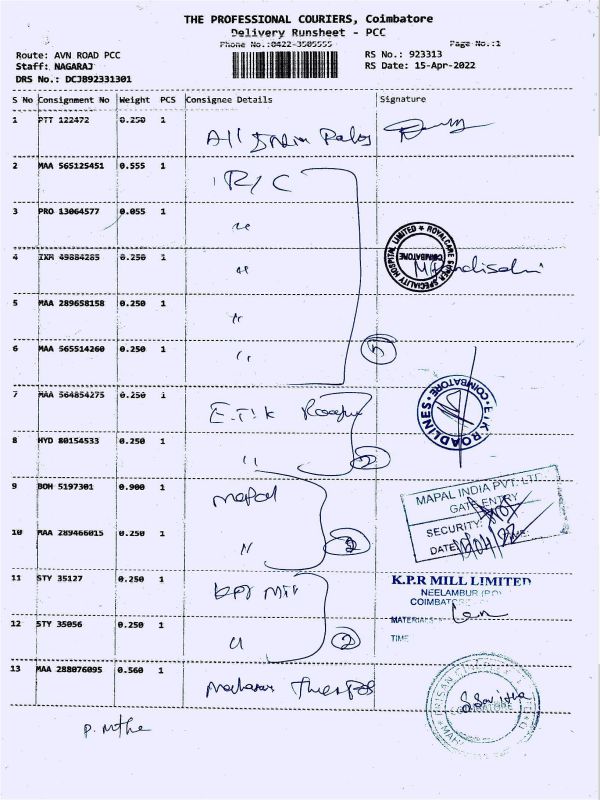 THE PROFESSIONAL COURIERS, Coimbatore
Delivery Runsheet - PCC
Phone No.:0422-3505555
Page No.:1
Route: AVN ROAD PCC
RS No.: 923313
Staff: NAGARAJ
RS Date: 15-Apr-2022
DRS No.: DCJB92331301
S No Consignment No Weight PCS Consignee Details Signature
1 PTT 122472 0.250 1 All
2 MAA 565125451 0.555 1 R/C
3 PRO 13064577 0.055 1 "
ROYALCARE SUPER SPECIALITY HOSPITAL LIMITED COIMBATORE
4 IXR 49884285 0.250 1 "
5 MAA 289658158 0.250 1 "
6 MAA 565514260 0.250 1 " 5
7 MAA 564854275 0.250 1 E.T.K
E.T.K ROADLINES COIMBATORE
8 HYD 80154533 0.250 1 " 2
9 BOH 5197301 0.900 1 Mapal
MAPAL INDIA PVT. LTD.
GATE ENTRY
SECURITY:
DATE:
10 MAA 289466015 0.250 1 " 2
11 STY 35127 0.250 1 KPR Mill
K.P.R MILL LIMITED
NEELAMBUR (PO)
COIMBATORE
12 STY 35056 0.250 1 " 2
MATERIALS
TIME
13 MAA 288076095 0.560 1